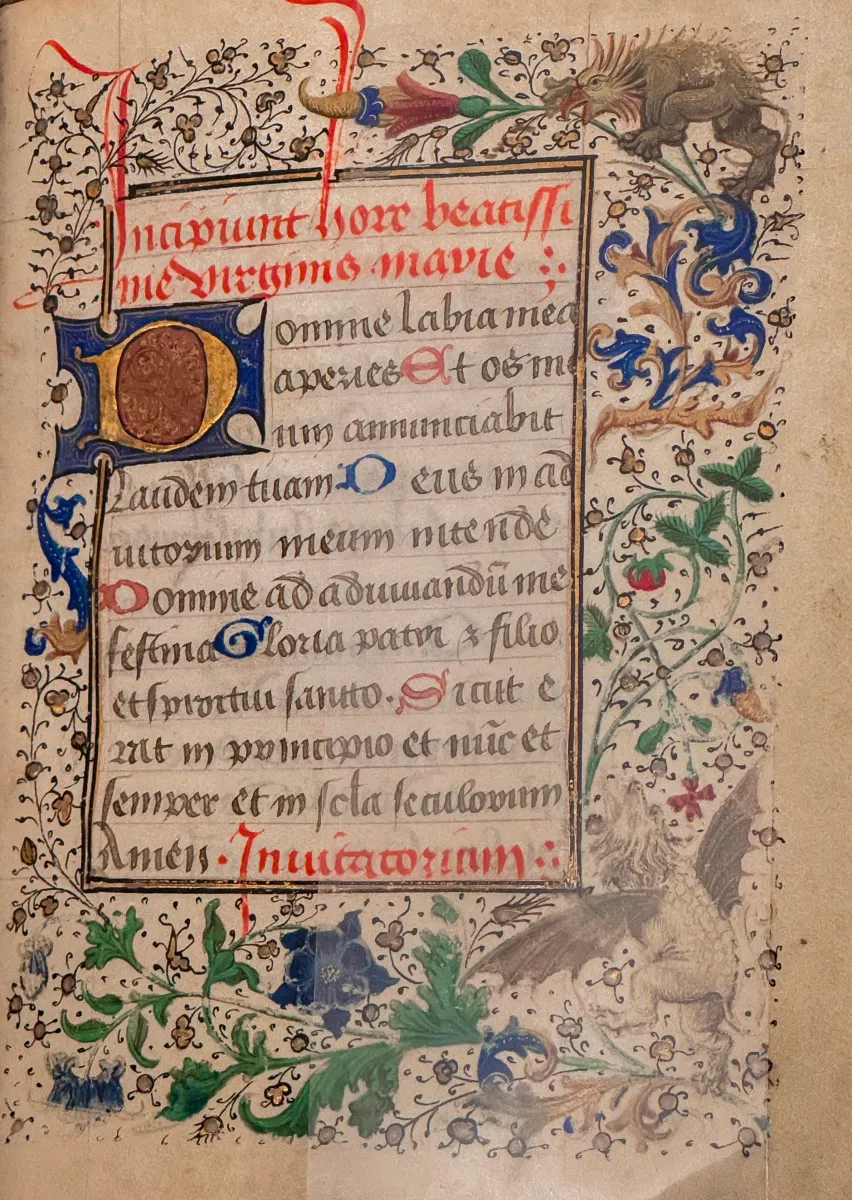 Incipiunt hore beatissi
me virginis marie :·
Domine labia mea
aperies Et os me
um annunciabit
Laudem tuam Deus in ad
iutorium meum intende
Domine ad adiuuandū me
festina Gloria patri ⁊ filio
et spiritui sancto. Sicut e
rat in principio et nūc et
semper et in scl̄a seculorum
Amen · Inuitatorium :·